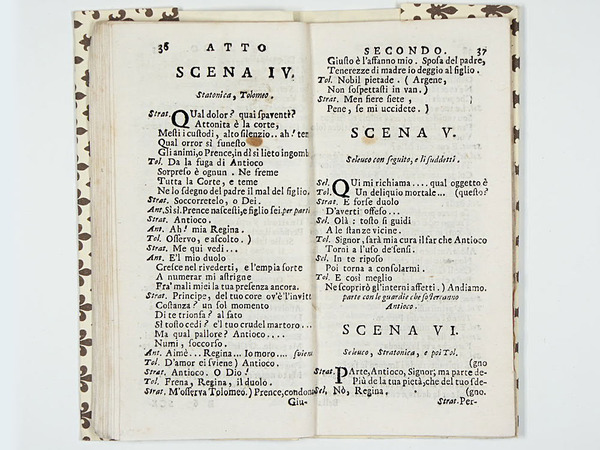 36 ATTO
SCENA IV.
Statonica, Tolomeo.
Strat. QUal dolor? quai spaventi?
Attonita è la corte,
Mesti i custodi, alto silenzio.. ah! ter
Qual orror sì funesto
Gli animi, o Prence, in dì sì lieto ingomb
Tol. Da la fuga di Antioco
Sorpreso è ognun. Ne freme
Tutta la Corte, e teme
Ne lo sdegno del padre il mal del figlio.
Strat. Soccorretelo, o Dei.
Ant. Sì sì. Prence nascesti, e figlio sei. per parti
Strat. Antioco.
Ant. Ah! mia Regina.
Tol. Osservo, e ascolto. )
Strat. Me qui vedi...
Ant. E'l mio duolo
Cresce nel rivederti, e l'empia sorte
A numerar mi astrigne
Fra' mali miei la tua presenza ancora.
Strat. Principe, del tuo core ov'è l'invitt
Costanza? un sol momento
Di te trionfa? al fato
Sì tosto cedi? e'l tuo crudel martoro...
Ma qual pallore? Antioco....
Numi, soccorso.
Ant. Aimè... Regina... Io moro.... sviene
Tol. D'amor ei sviene) Antioco.
Strat. Antioco. O Dio!
Tol. Frena, Regina, il duolo.
Strat. M'osserva Tolomeo.) Prence, condona
Giu-
SECONDO. 37
Giusto è l'affanno mio. Sposa del padre,
Tenerezze di madre io deggio al figlio.
Tol. Nobil pietade. ( Argene,
Non sospettasti in van.)
Strat. Men fiere siete, )
Pene, se mi uccidete. )
SCENA V.
Seleuco con seguito, e li suddetti.
Sel. QUi mi richiama.... qual oggetto è
Tol. Un deliquio mortale... (questo?
Strat. E forse duolo
D'averti offeso...
Sel. Olà: tosto si guidi
A le stanze vicine.
Tol. Signor, sarà mia cura il far che Antioco
Torni a l'uso de' sensi.
Sel. In te riposo
Poi torna a consolarmi.
Tol. E così meglio
Ne scoprirò gl'interni affetti.) Andiamo.
parte con le guardie che sostentano
Antioco.
SCENA VI.
Seleuco, Stratonica, e poi Tol.
(gno
Strat. PArte, Antioco, Signor; ma parte de-
Più de la tua pietà, che del tuo sde-
Sel. Nò, Regina. (gno.
Strat. Per-